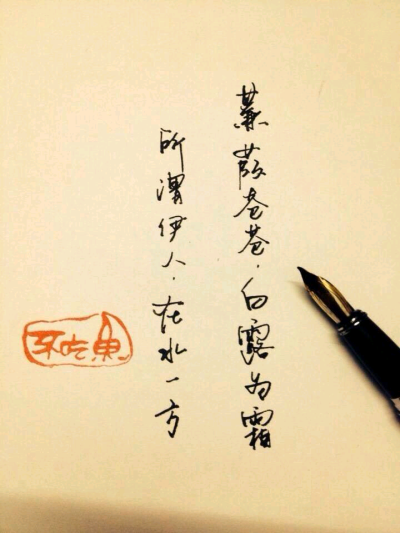 蒹葭苍苍.白露为霜
所谓伊人.在水一方
不吃鱼